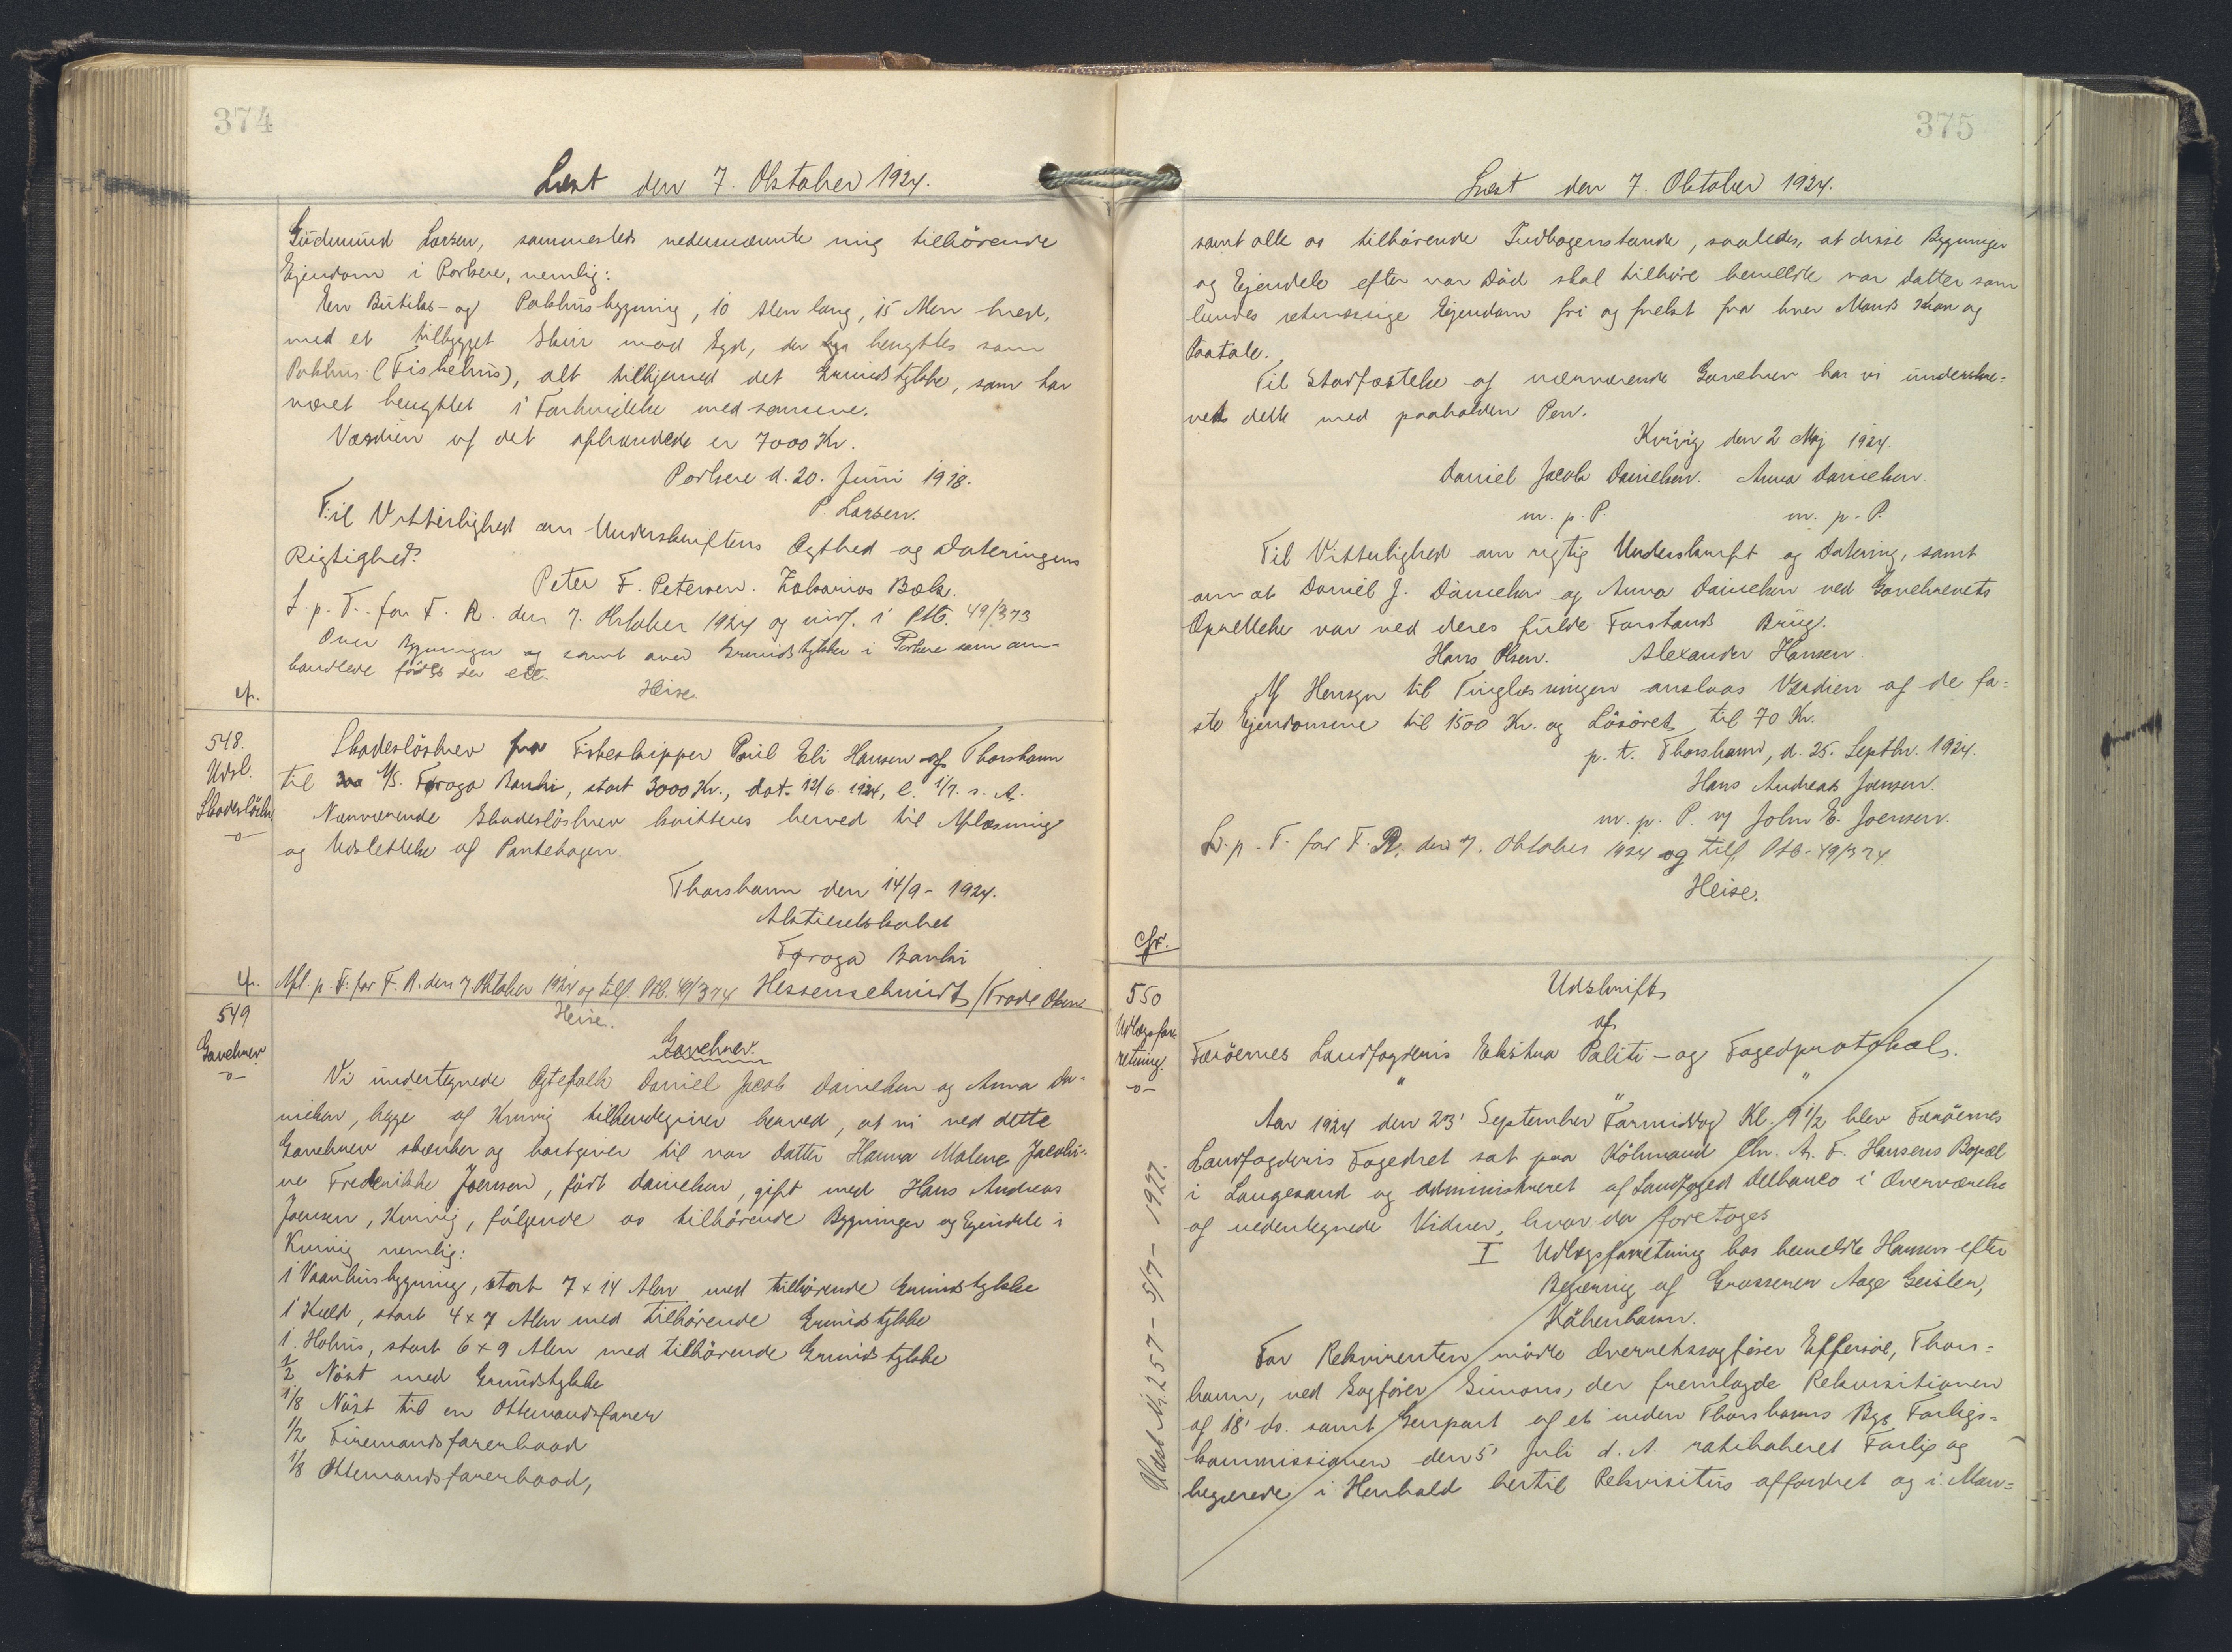 374
Læst den 7. Oktober 1924.
Gudmund Larsen, sammesteds nedennævnte mig tilhörende
Ejendom i Porkere, nemlig:
En Butiks- og Pakhusbygning, 10 Alen lang, 15 Alen bred,
med et tilbygget Skur mod Syd, der benyttes som
Pakhus (Fiskehus), alt tilligemed det Grundstykke, som har
været benyttet i Forbindelse med samme.
Værdien af det afhændede er 7000 Kr.
Porkere d. 20. Juni 1918.
P. Larsen.
Til Vitterlighed om Underskriftens Ægthed og Dateringens
Rigtighed:
Peter F. Petersen. Zakarias Bæk.
L. p. T. for F. R. den 7. Oktober 1924 og indf. i Ptb. 49/373
Over Bygninger og samt over Grundstykker i Porkere som om-
handlede födes der ette.
Heise.
cfr.
548.
Udsl.
Skadeslösbr.
Skadeslösbrev fra Fiskeskipper Poul Eli Hansen af Thorshavn
til A/S. Föroya Banki, stort 3000 Kr., dat. 12/6. 1924, l. 1/7. s. A.
Nærværende Skadeslösbrev kvitteres herved til Aflæsning
og Udslettelse af Pantebogen.
Thorshavn den 14/9 - 1924.
Aktieselskabet
Føroya Banki
Hessenschmidt / Frode Olsen
cfr.
Afl. p. T. for F. R. den 7 Oktober 1924 og tilf. Ptb. 49/374
Heise.
549
Gavebrev
Gavebrev.
Vi undertegnede Ægtefolk Daniel Jacob Danielsen og Anna Da-
nielsen, begge af Kvivig tilkendegiver herved, at vi ved dette
Gavebrev skænker og bortgiver til vor Datter Hanna Malene Jacobi-
ne Frederikke Joensen, födt Danielsen, gift med Hans Andreas
Joensen, Kvivig, fölgende os tilhörende Bygninger og Ejendele i
Kvivig nemlig:
1 Vaanhusbygning, stort 7 x 14 Alen med tilhörende Grundstykke
1 Kæld, stort 4 x 7 Alen med tilhörende Grundstykke
1. Hohus, stort 6 x 9 Alen med tilhörende Grundstykke
1/2 Nöst med Grundstykke
1/8 Nöst til en Ottemandsfarer
1/2 Firemandsfarerbaad
1/8 Ottemandsfarerbaad,
375
Læst den 7. Oktober 1924.
samt alle os tilhörende Indbogenstande, saaledes, at disse Bygninger
og Ejendele efter vor Död skal tilhöre bemeldte vor Datter som
hendes retmæssige Ejendom fri og frelst fra hver Mands Krav og
Paatale.
Til Stadfæstelse af nærværende Gavebrev har vi underskre=
vet dette med paaholden Pen.
Kvivig den 2 Maj 1924.
Daniel Jacob Danielsen. Anna Danielsen.
m. p. P. m. p. P.
Til Vitterlighed om rigtig Underskrift og Datering, samt
om at Daniel J. Danielsen og Anna Danielsen ved Gavebrevets
Oprettelse var ved deres fulde Forstands Brug.
Hans Olsen. Alexander Hansen.
Af Hensyn til Tinglæsningen anslaas Værdien af de fa=
ste Ejendomme til 1500 Kr. og Lösöret til 70 Kr.
p. t. Thorshavn, d. 25. Septbr. 1924.
Hans Andreas Joensen.
m. p. P. v/ John E. Joensen.
L. p. T. for F. R. den 7. Oktober 1924 og tilf. Ptb. 49/374
Heise.
cfr.
550
Udlægsfor-
retning.
Udslet Nr. 257 - 5/7 - 1927.
Udskrift
af
Færöernes Landfogderis Ekstra Politi- og Fogedprotokol.
Aar 1924 den 23' September Formiddag Kl. 9 1/2 blev Færöernes
Landfogderis Fogedret sat paa Köbmand Chr. A. F. Hansens Bopæl
i Langesand og administreret af Landfoged Dellbanco i Overværelse
af nedentegnede Vidner, hvor da foretoges
I Udlægsforretning hos bemeldte Hansen efter
Begæring af Grosserer Aage Geisler,
Köbenhavn.
For Rekvirenten mödte Overretssagförer Effersöe, Thors=
havn, ved Sagförer Simons, der fremlagde Rekvisitionen
af 18' ds. samt Genpart af et inden Thorshavns Bys Forligs=
kommissionen den 5' Juli d. A. ratihaberet Forlig og
begærede i Henhold hertil Rekvisitus affordret og i Man=